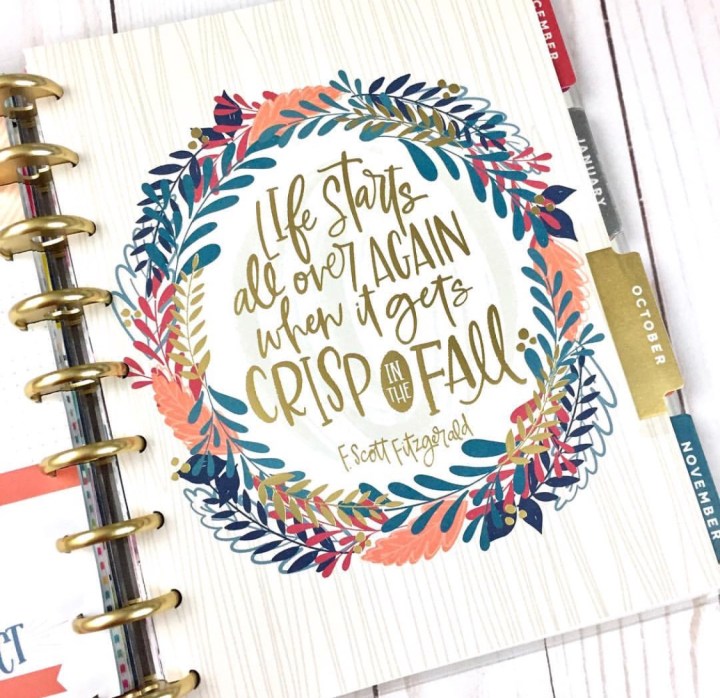 CEMBER
JANUARY
LIfe Starts
all over AGAIN
when it gets
CRISP IN THE FAll
F. Scott Fitzgerald
OCTOBER
NOVEMBER
CT